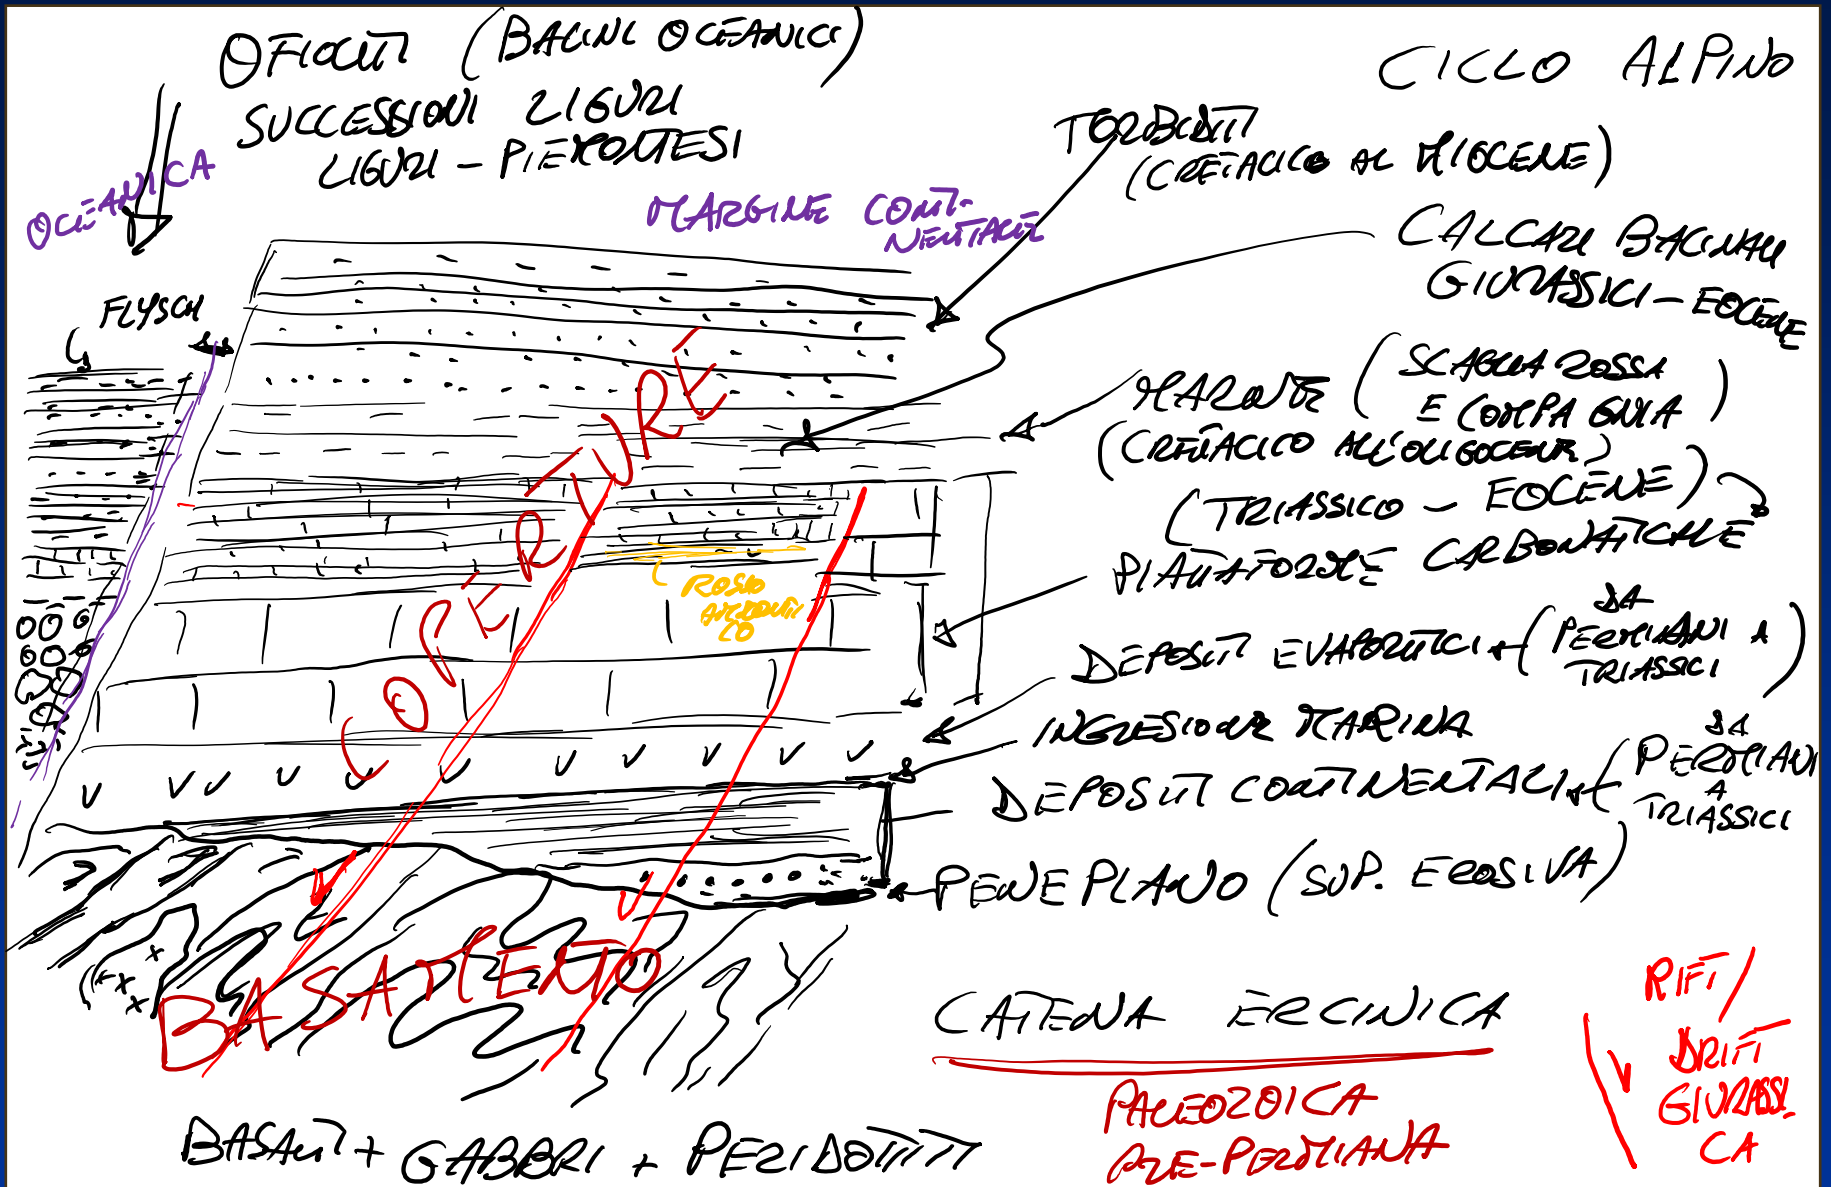 OFIOLITI (BACINI OCEANICI)
SUCCESSIONI LIGURI
LIGURI - PIEMONTESI
CICLO ALPINO
OCEANICA
MARGINE CONTI-
NENTALE
TORBIDITI
(CRETACICO AL MIOCENE)
CALCARI BACINALI
GIURASSICI - EOCENE
FLYSCH
MARNE (SCAGLIA ROSSA
E COMPAGNIA)
(CRETACICO ALL'OLIGOCENE)
(TRIASSICO - EOCENE)
PIATTAFORME CARBONATICHE
ROSSO
AMMONITI
CO
COPERTURE
DEPOSITI EVAPORITICI (DA
PERMIANI A
TRIASSICI)
INGRESSIONE MARINA
DEPOSITI CONTINENTALI (DA
PERMIANI
A
TRIASSICI
PENEPLANO (SUP. EROSIVA)
BASAMENTO
CATENA ERCINICA
PALEOZOICA
PRE-PERMIANA
RIFT/
DRIFT
GIURASSI
CA
BASALTI + GABBRI + PERIDOTITI